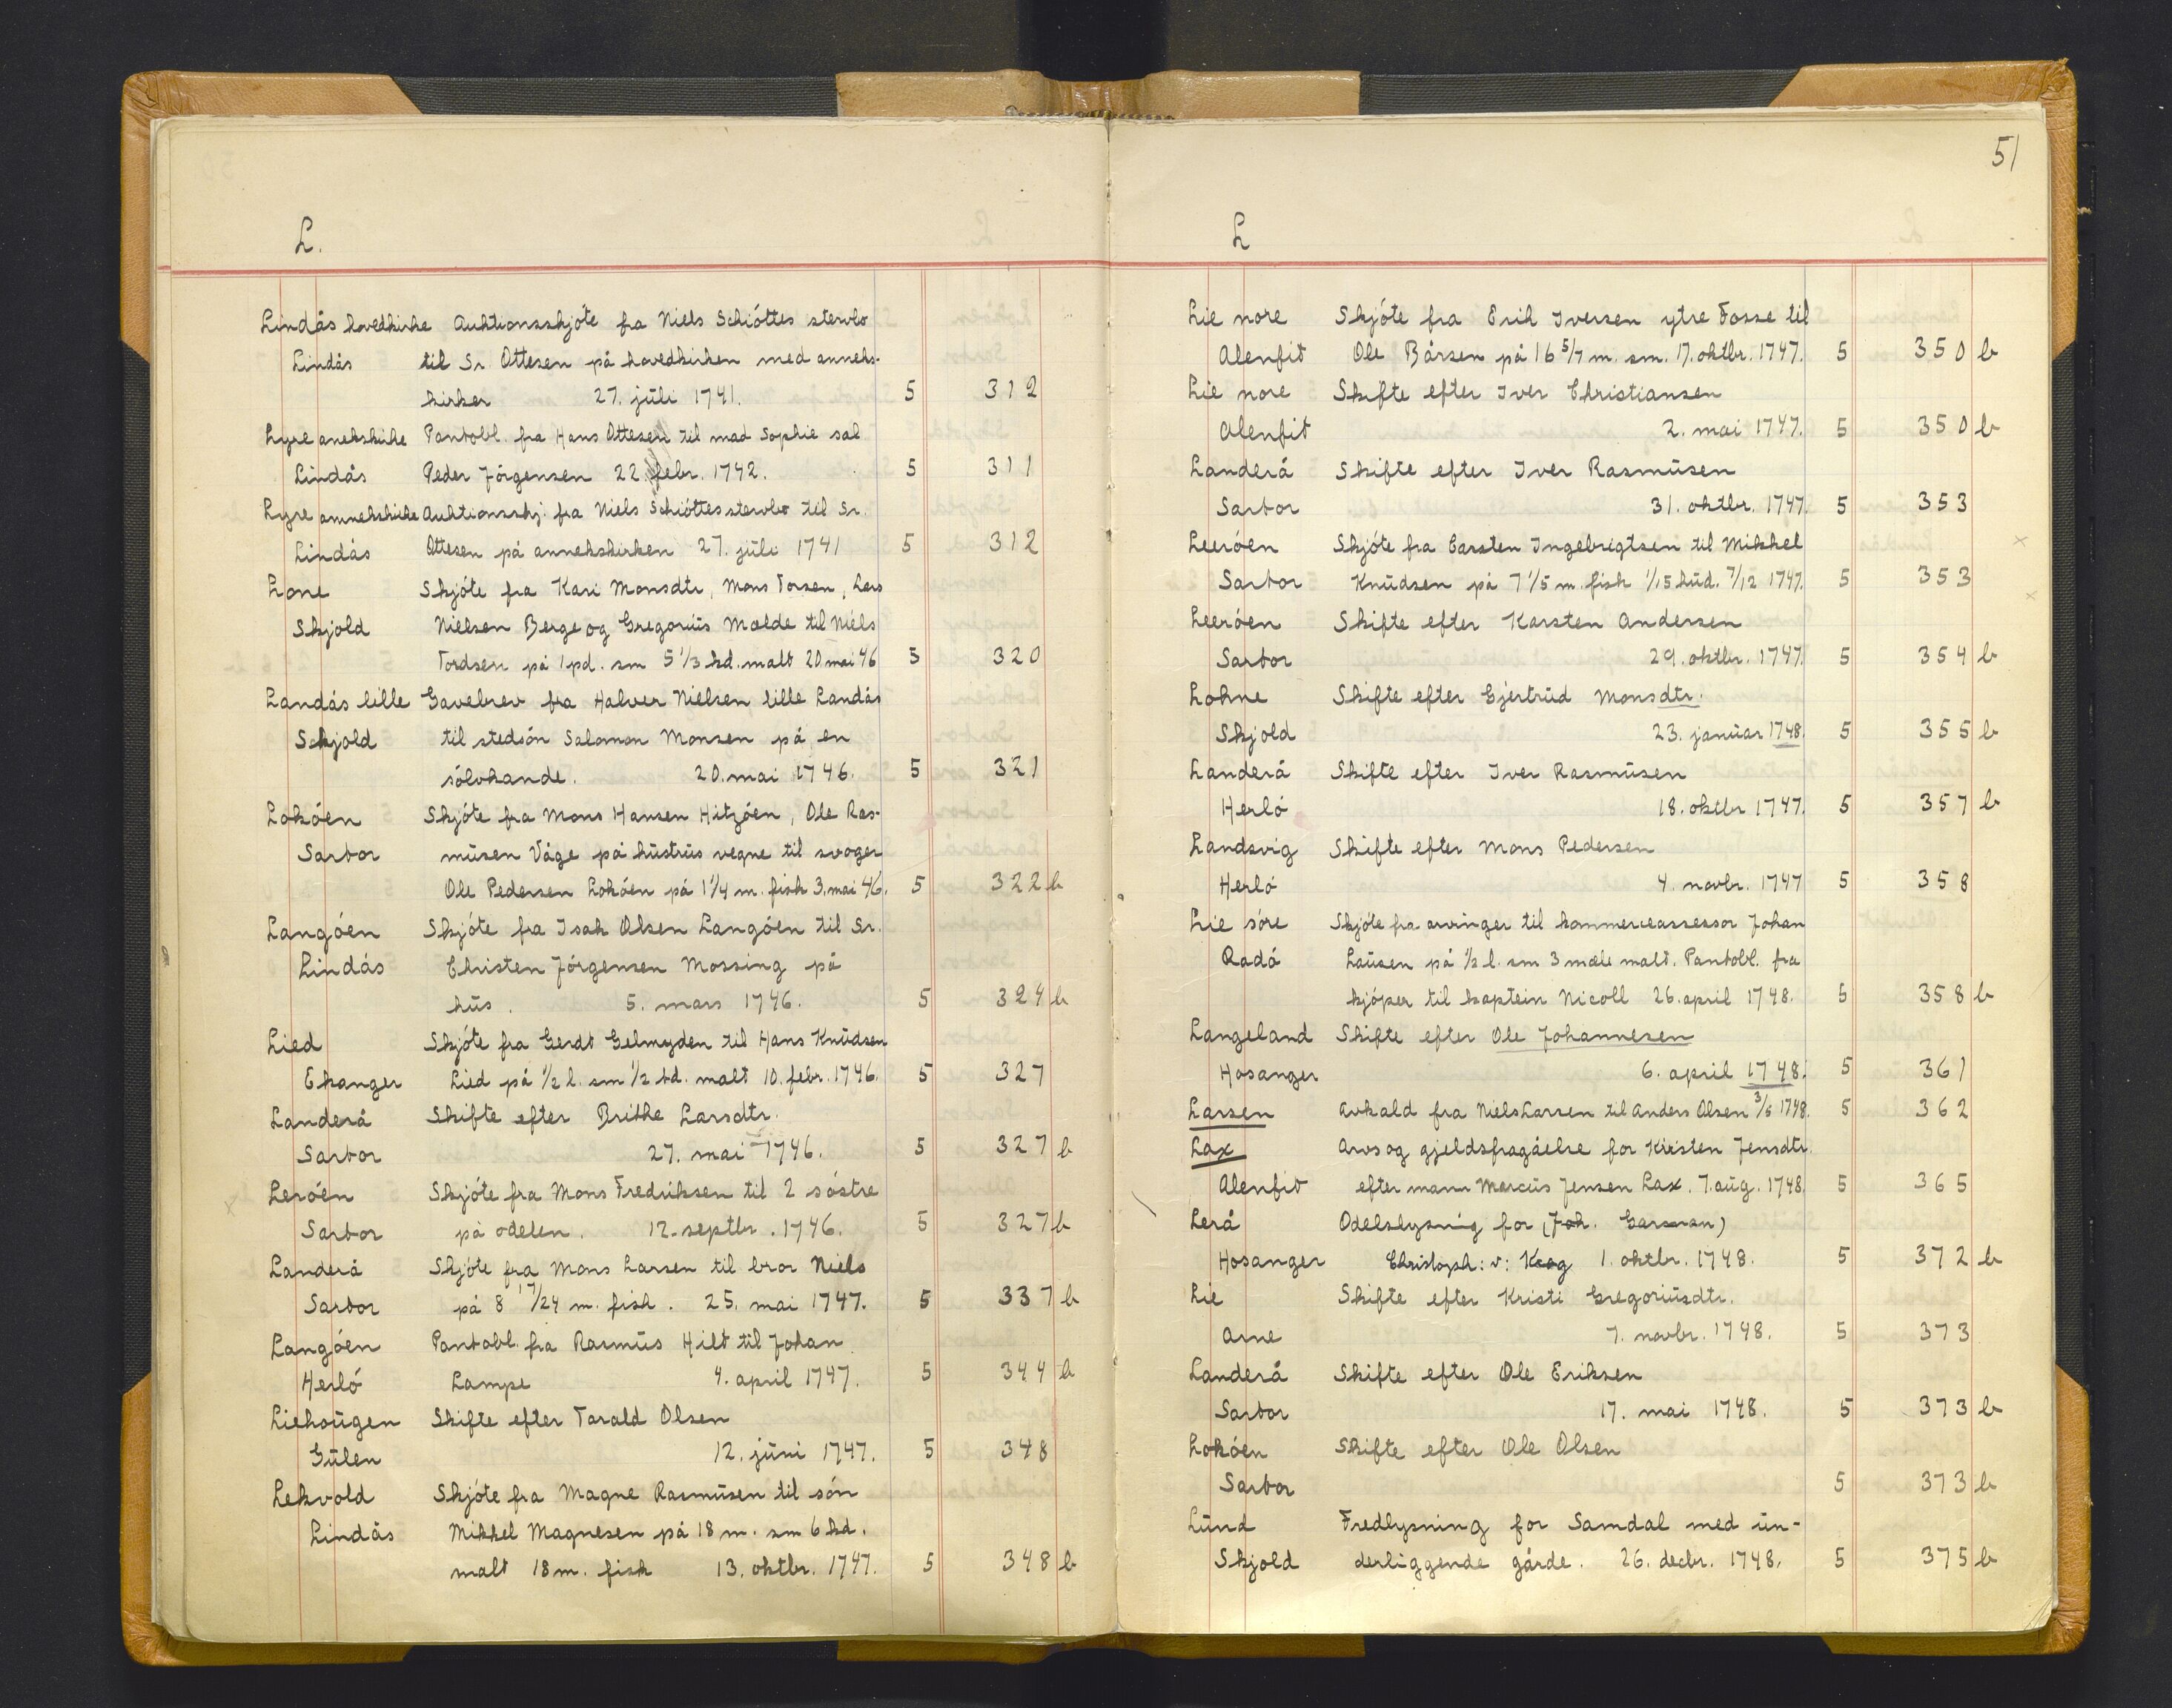 L.
Lindås hovedkirke Auktionsskjóte fra Niels Schióttes stervbo
Lindås til Sr. Ottesen på hovedkirken med anneks-
kirker 27. júli 1741. 5 312
Lyre anekskirke Pantobl. fra Hans Ottesen til mad Sophie sal
Lindås Peder Jórgensen 22 febr. 1742. 5 311
Lyre annekskirke Auktionsskj. fra Niels Schióttes stervbo til Sr.
Lindås Ottesen på annekskirken 27. júli 1741 5 312
Lone Skjóte fra Kari Monsdtr, Mons Torsen, Lars
Skjold Nielsen Berge og Gregoriús Mælde til Niels
Tordsen på 1 pd. sm 5 1/3 kd. malt 20 mai 46 5 320
Landås lille Gavebrev fra Halver Nielsen lille Landås
Schjold til stedsón Salomon Monsen på en
sólvkande. 20. mai 1746. 5 321
Lokóen Skjóte fra Mons Hansen Hitzóen, Ole Ras-
Sartor músen Våge på hústrús vegne til svoger
Ole Pedersen Lokóen på 1 1/4 m. fisk 3. mai 46. 5 322 b
Langóen Skjóte fra Isak Olsen Langóen til Sr.
Lindås Christen Jórgensen Mossing på
hús. 5. mars 1746. 5 324 b
Lied Skjóte fra Gerdt Gelmyden til Hans Knúdsen
Ekanger Lied på 1/2 l. sm 1/2 td. malt 10. febr. 1746. 5 327
Landerå Skifte efter Brithe Larsdtr.
Sartor 27. mai 1746. 5 327 b
Leróen Skjóte fra Mons Fredriksen til 2 sóstre
Sartor på odelen. 12. septbr. 1746. 5 327 b
Landerå Skjóte fra Mons Larsen til bror Niels
Sartor på 8 17/24 m. fisk. 25. mai 1747. 5 337 b
Langóen Pantobl. fra Rasmús Hilt til Johan
Herló Lampe 4. april 1747. 5 344 b
Liehoúgen Skifte efter Torald Olsen
Gúlen 12. júni 1747. 5 348
Lekvold Skjóte fra Magne Rasmúsen til són
Lindås Mikkel Magnesen på 18 m. sm 6 kd.
malt 18 m. fisk 13. oktbr. 1747. 5 348 b
51
L
Lie nore Skjóte fra Erik Iversen ytre Fosse til
Alenfit Ole Bårsen på 16 5/7 m. sm. 17. oktbr. 1747. 5 350 b
Lie nore Skifte efter Iver Christiansen
Alenfit 2. mai 1747. 5 350 b
Landerå Skifte efter Iver Rasmúsen
Sartor 31. oktbr. 1747. 5 353
Leeróen Skjóte fra Carsten Ingebrigtsen til Mikkel
Sartor Knúdsen på 7 1/5 m. fisk 1/15 húd. 7/12 1747. 5 353
Leeróen Skifte efter Karsten Andersen
Sartor 29. oktbr. 1747. 5 354 b
Lohne Skifte efter Gjertrúd Monsdtr.
Skjold 23. janúar 1748. 5 355 b
Landerå Skifte efter Iver Rasmúsen
Herló 18. oktbr 1747. 5 357 b
Landsvig Skifte efter Mons Pedersen
Herló 4. novbr. 1747 5 358
Lie sóre Skjóte fra arvinger til kommerceassessor Johan
Radó Laúsen på 1/2 l. sm 3 mæle malt. Pantobl. fra
kjóper til kaptein Nicoll 26. april 1748. 5 358 b
Langeland Skifte efter Ole Johannesen
Hosanger 6. april 1748. 5 361
Larsen Avkald fra Niels Larsen til Anders Olsen 3/5 1748. 5 362
Lax Arvs og gjeldsfragåelse for Kirsten Jensdtr.
Alenfit efter mann Marcús Jensen Lax. 7. aúg. 1748. 5 365
Lerå Odelslysnig for (Joh. Garman)
Hosanger Christoph: v: Krog 1. oktbr. 1748. 5 372 b
Lie Skifte efter Kristi Gregoriúsdtr.
Arne 7. novbr. 1748. 5 373
Landerå Skifte efter Ole Eriksen
Sartor 17. mai 1748. 5 373 b
Lokóen Skifte efter Ole Olsen
Sartor 5 373 b
Lúnd Fredlysning for Samdal med ún-
Skjold derliggende gårde. 26. decbr. 1748. 5 375 b